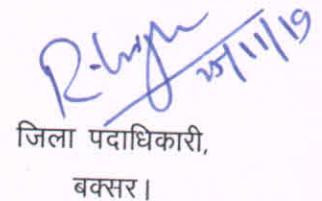 25/11/19
जिला पदाधिकारी,
बक्सर।